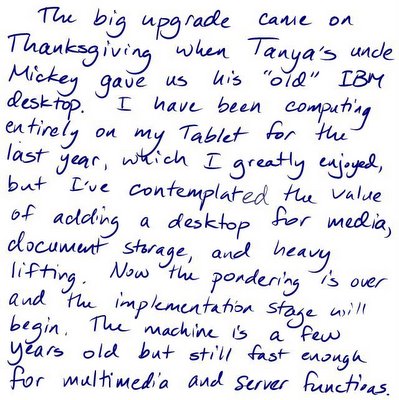 The big upgrade came on
Thanksgiving when Tanya's uncle
Mickey gave us his "old" IBM
desktop. I have been computing
entirely on my Tablet for the
last year, which I greatly enjoyed,
but I've contemplated the value
of adding a desktop for media,
document storage, and heavy
lifting. Now the pondering is over
and the implementation stage will
begin. The machine is a few
years old but still fast enough
for multimedia and server functions.